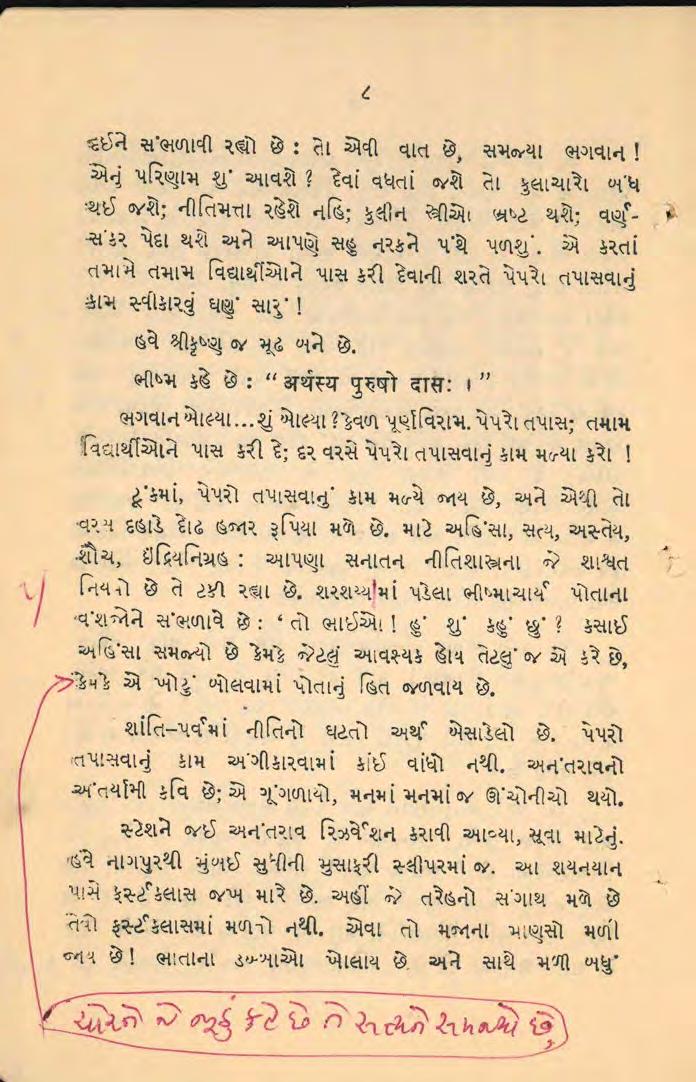 ૮
દઈને સંભળાવી રહ્યો છે : તો એવી વાત છે, સમજ્યા ભગવાન !
એનું પરિણામ શું આવશે ? દેવાં વધતાં જશે તો કુલાચારો બંધ
થઈ જશે; નીતિમત્તા રહેશે નહિ; કુલીન સ્ત્રીઓ ભ્રષ્ટ થશે; વર્ણ-
સંકર પેદા થશે અને આપણે સહુ નરકને પંથે પળશું. એ કરતાં
તમામે તમામ વિદ્યાર્થીઓને પાસ કરી દેવાની શરતે પેપરો તપાસવાનું
કામ સ્વીકારવું ઘણું સારું !
હવે શ્રીકૃષ્ણ જ મૂઢ બને છે.
ભીષ્મ કહે છે : “ अर्थस्य पुरुषो दासः । ”
ભગવાન બોલ્યા...શું બોલ્યા ? કેવળ પૂર્ણવિરામ. પેપરો તપાસ; તમામ
વિદ્યાર્થીઓને પાસ કરી દે; દર વરસે પેપરો તપાસવાનું કામ મળ્યા કરો !
ટૂંકમાં, પેપરો તપાસવાનું કામ મળ્યે જાય છે, અને એથી તો
વરસ દહાડે દોઢ હજાર રૂપિયા મળે છે. માટે અહિંસા, સત્ય, અસ્તેય,
શૌચ, ઇંદ્રિયનિગ્રહ : આપણા સનાતન નીતિશાસ્ત્રના જે શાશ્વત
નિયમો છે તે ટકી રહ્યા છે. શરશય્યામાં પડેલા ભીષ્માચાર્ય પોતાના
વંશજોને સંભળાવે છે : ‘ તો ભાઈઓ ! હું શું કહું છું ? કસાઈ
અહિંસા સમજ્યો છે કેમકે જેટલું આવશ્યક હોય તેટલું જ એ કરે છે,
કેમકે એ ખોટું બોલવામાં પોતાનું હિત જળવાય છે.
શાંતિ-પર્વમાં નીતિનો ઘટતો અર્થ બેસાડેલો છે. પેપરો
તપાસવાનું કામ અંગીકારવામાં કાંઈ વાંધો નથી. અનંતરાવનો
અંતર્યામી કવિ છે; એ ગૂંગળાયો, મનમાં મનમાં જ ઊંચોનીચો થયો.
સ્ટેશને જઈ અનંતરાવ રિઝર્વેશન કરાવી આવ્યા, સૂવા માટેનું.
હવે નાગપુરથી મુંબઈ સુધીની મુસાફરી સ્લીપરમાં જ. આ શયનયાન
પાસે ફર્સ્ટક્લાસ જખ મારે છે. અહીં જે તરેહનો સંગાથ મળે છે
તેવો ફર્સ્ટક્લાસમાં મળતો નથી. એવા તો મજાના માણસો મળી
જાય છે ! ભાતાના ડબ્બાઓ ખોલાય છે અને સાથે મળી બધું
ચોરને જે જૂઠું કહે છે તે સત્યને સમજ્યો છે,